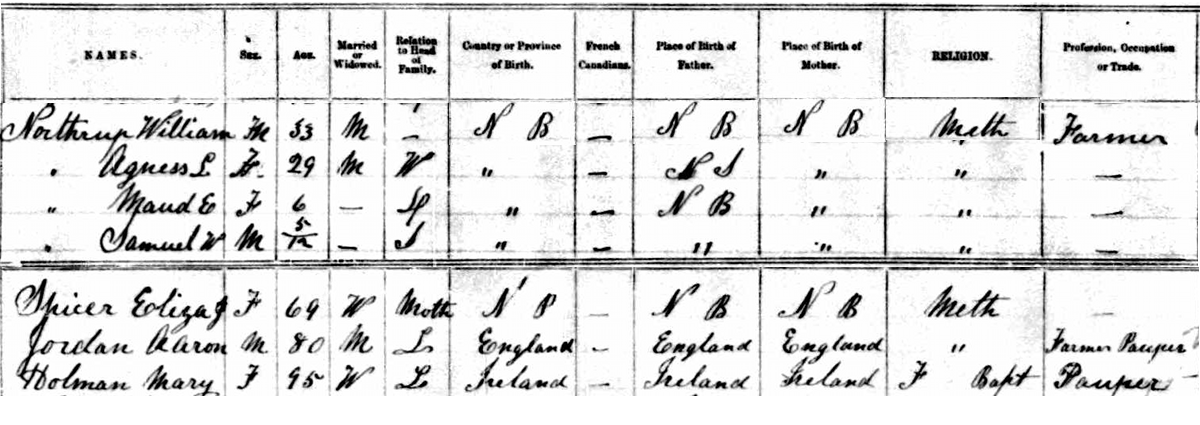 NAMES. Sex. Age. Married or Widowed. Relation to Head of Family. Country or Province of Birth. French Canadians. Place of Birth of Father. Place of Birth of Mother. RELIGION. Profession, Occupation or Trade.
Northrup William M 33 M – N B – N B N B Meth Farmer
" Agness L F. 29 M W " – N S " " —
" Maud E F 6 — " – N B " " —
" Samuel W M 5/12 – S " – " " " —
Spicer Eliza F 69 W Moth N B – N B N B Meth —
Jordan Aaron M 80 M L England – England England " Farmer Pauper
Holman Mary F 95 W L Ireland – Ireland Ireland F Bapt Pauper